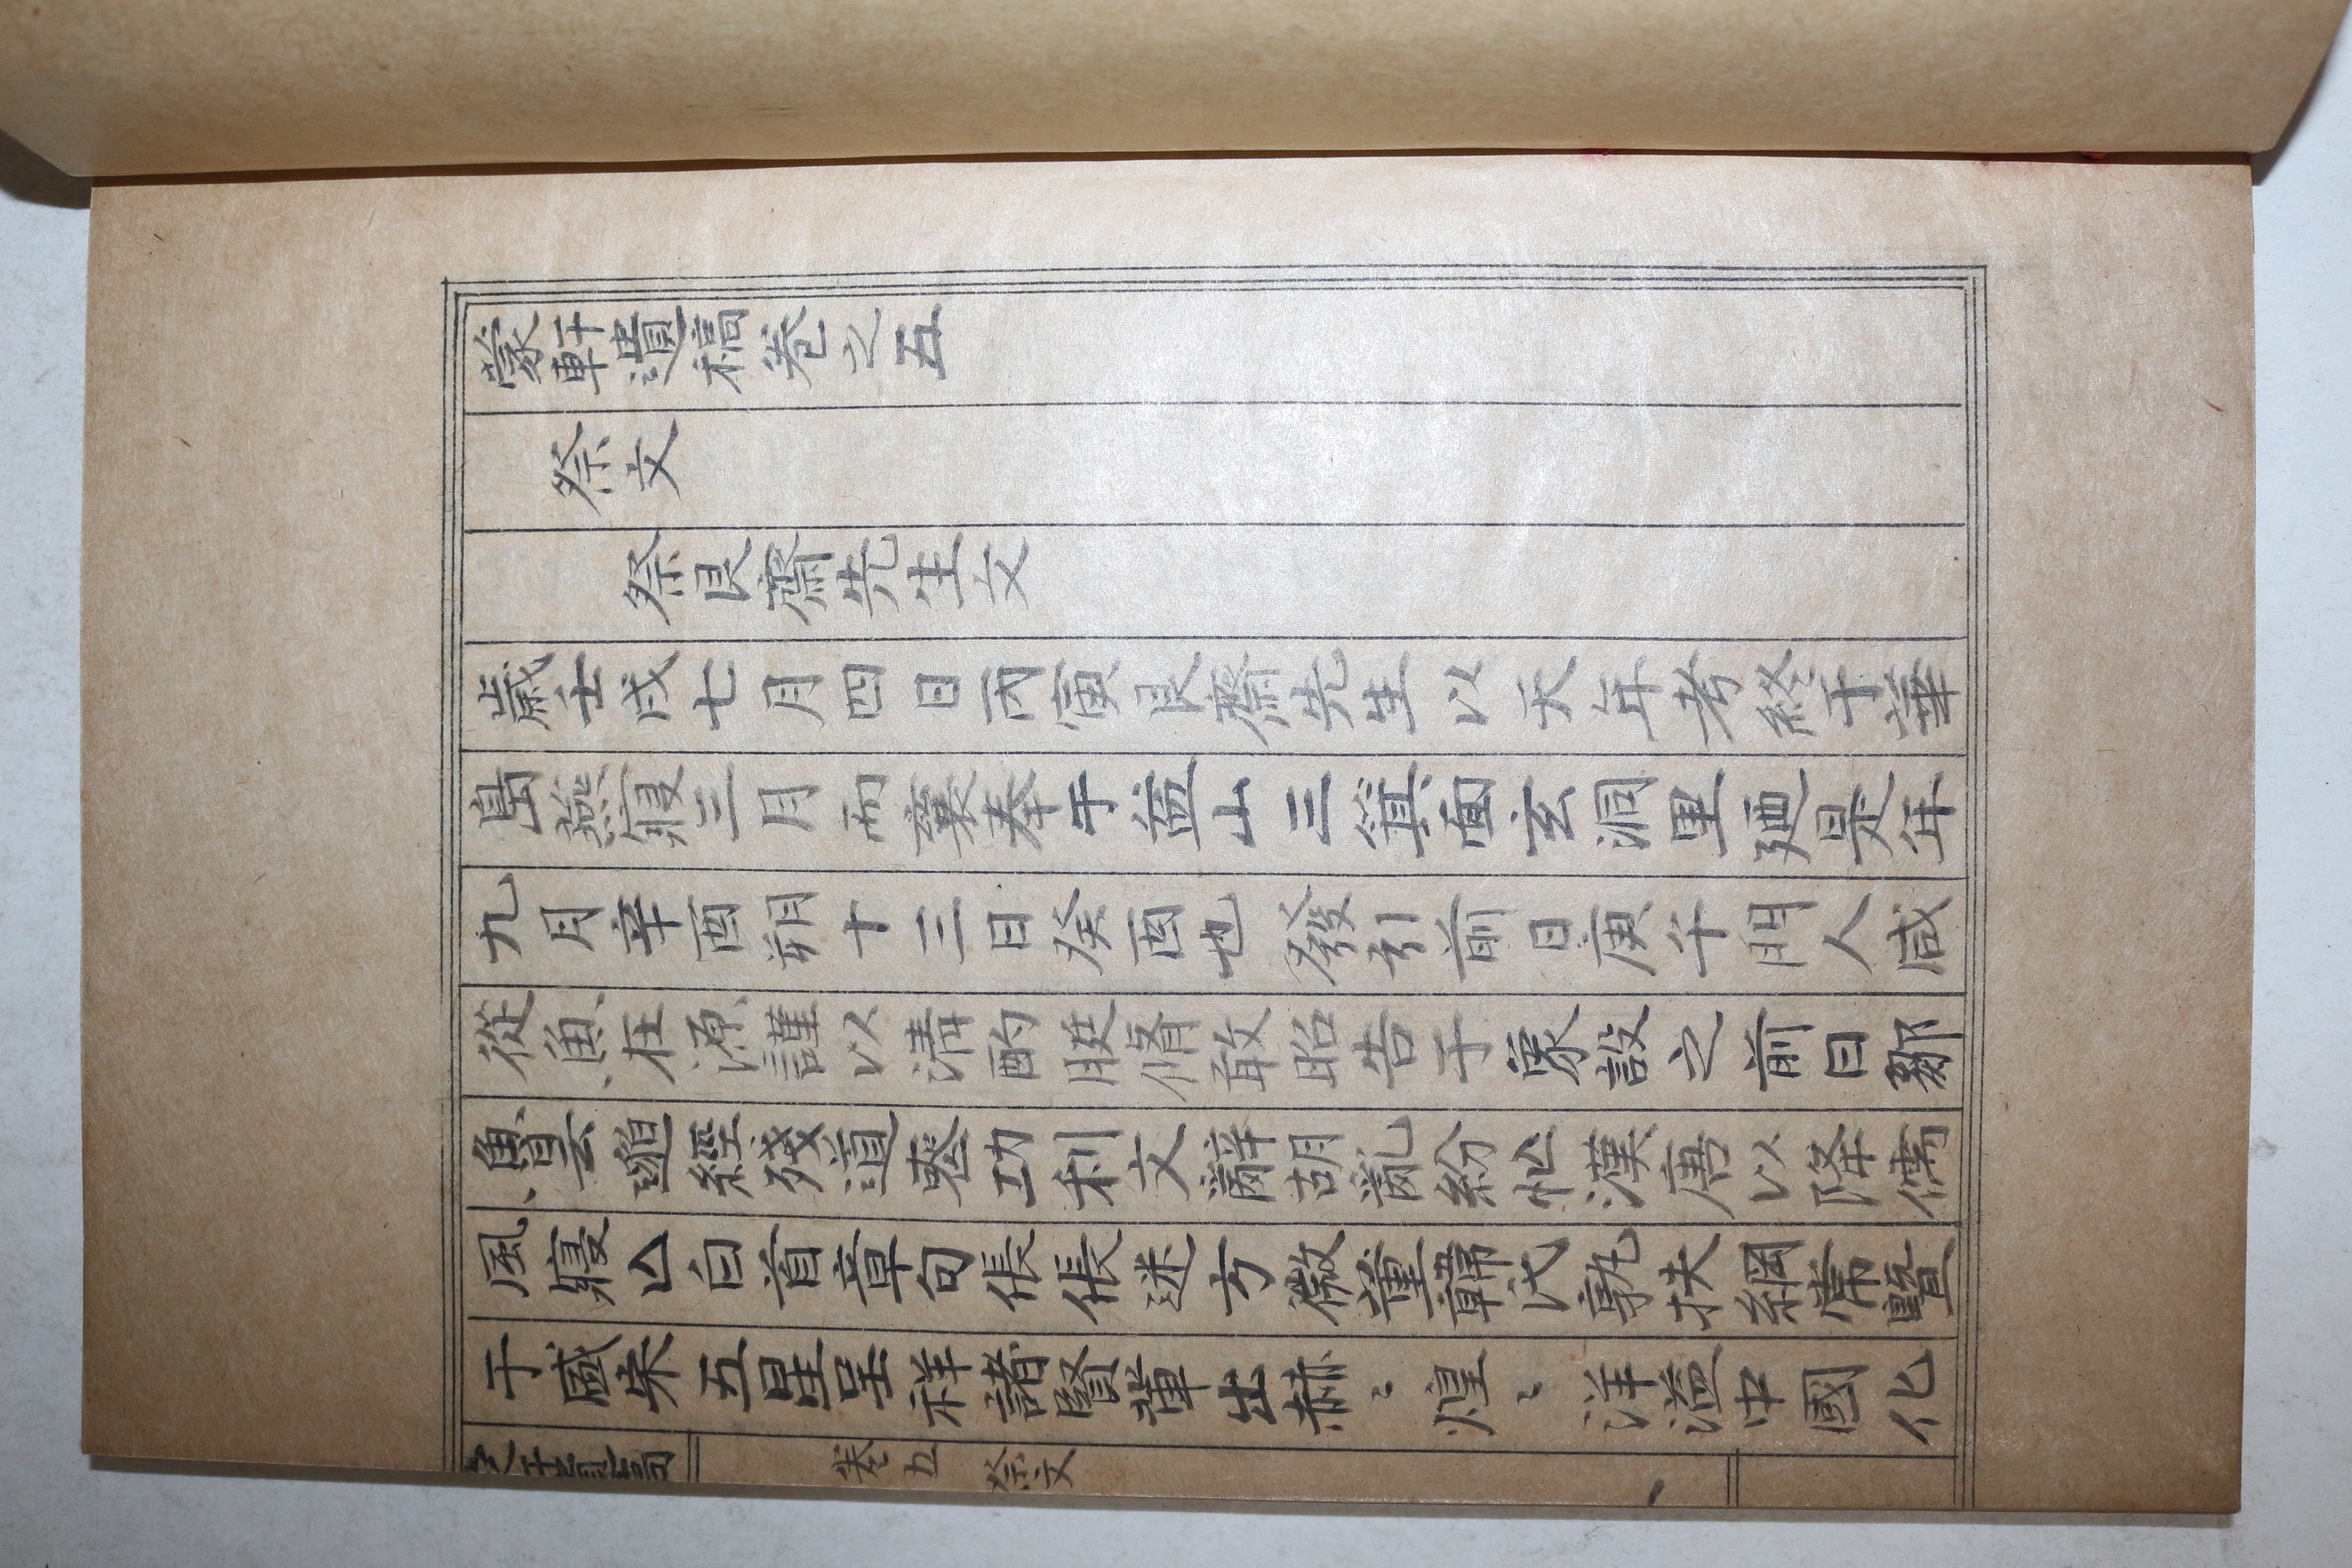 蒙軒遺稿卷之五
祭文
祭艮齋先生文
歲壬戌七月四日丙寅艮齋先生以天年考終于華
島燕寢三月而襄奉于益山三箕面玄洞里廼是年
九月辛酉朔十三日癸酉也發引前日庚午門人咸
從魚在源謹以淸酌脡脩敢昭告于象設之前曰鄒
魯云邈經殘道塞功利文辭胡亂紛忙漢唐以降儒
風寢亾白首章句倀倀迷方微董韓氏孰扶綱常曁
于盛宋五星呈祥諸賢輩出赫〻煌〻洋溢中國化
卷五 祭文